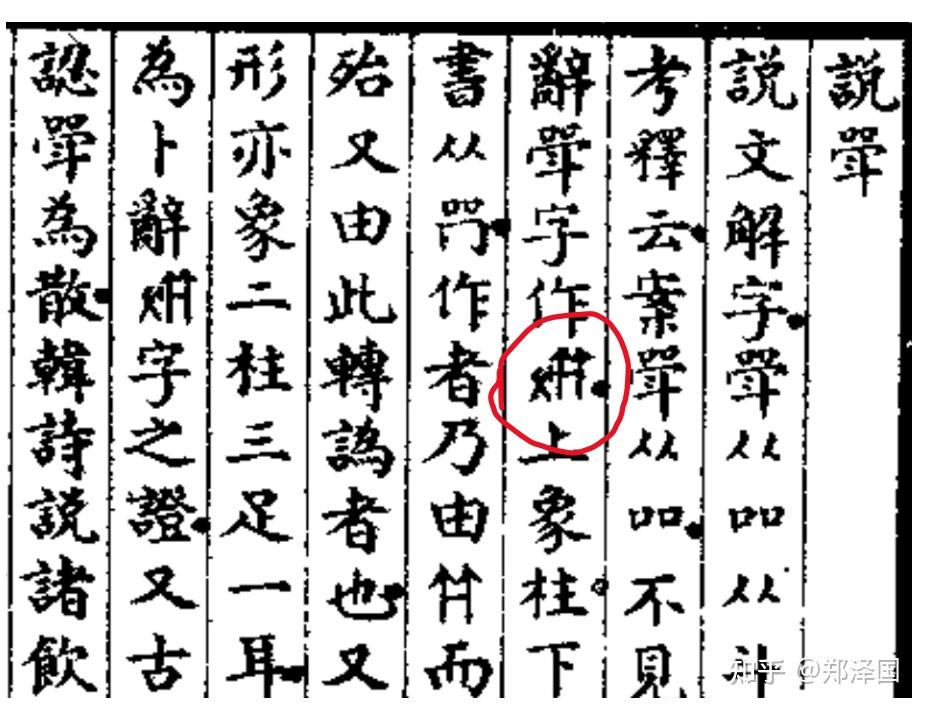 説斝
説文解字斝从吅从斗
考釋云案斝从吅不見
辭斝字作上象柱下
書从作者乃由而
殆又由此轉譌者也又
形亦象二柱三足一耳
為卜辭字之證又古
認斝為散韓詩説諸飲
知乎 @郑泽国